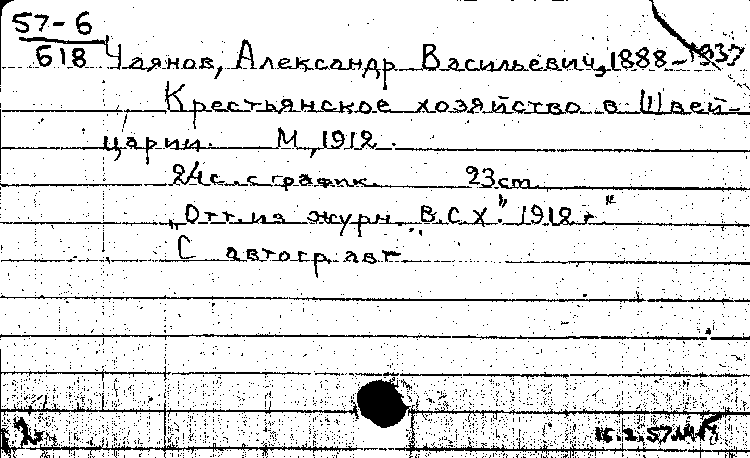 57-6
618
Чаянов, Александр Васильевич, 1888-1937
Крестьянское хозяйство в Швей-
царии. М., 1912.
24с. с график. 23cm.
„Отт. из журн. „В.С.Х." 1912 г."
С автогр. авт.